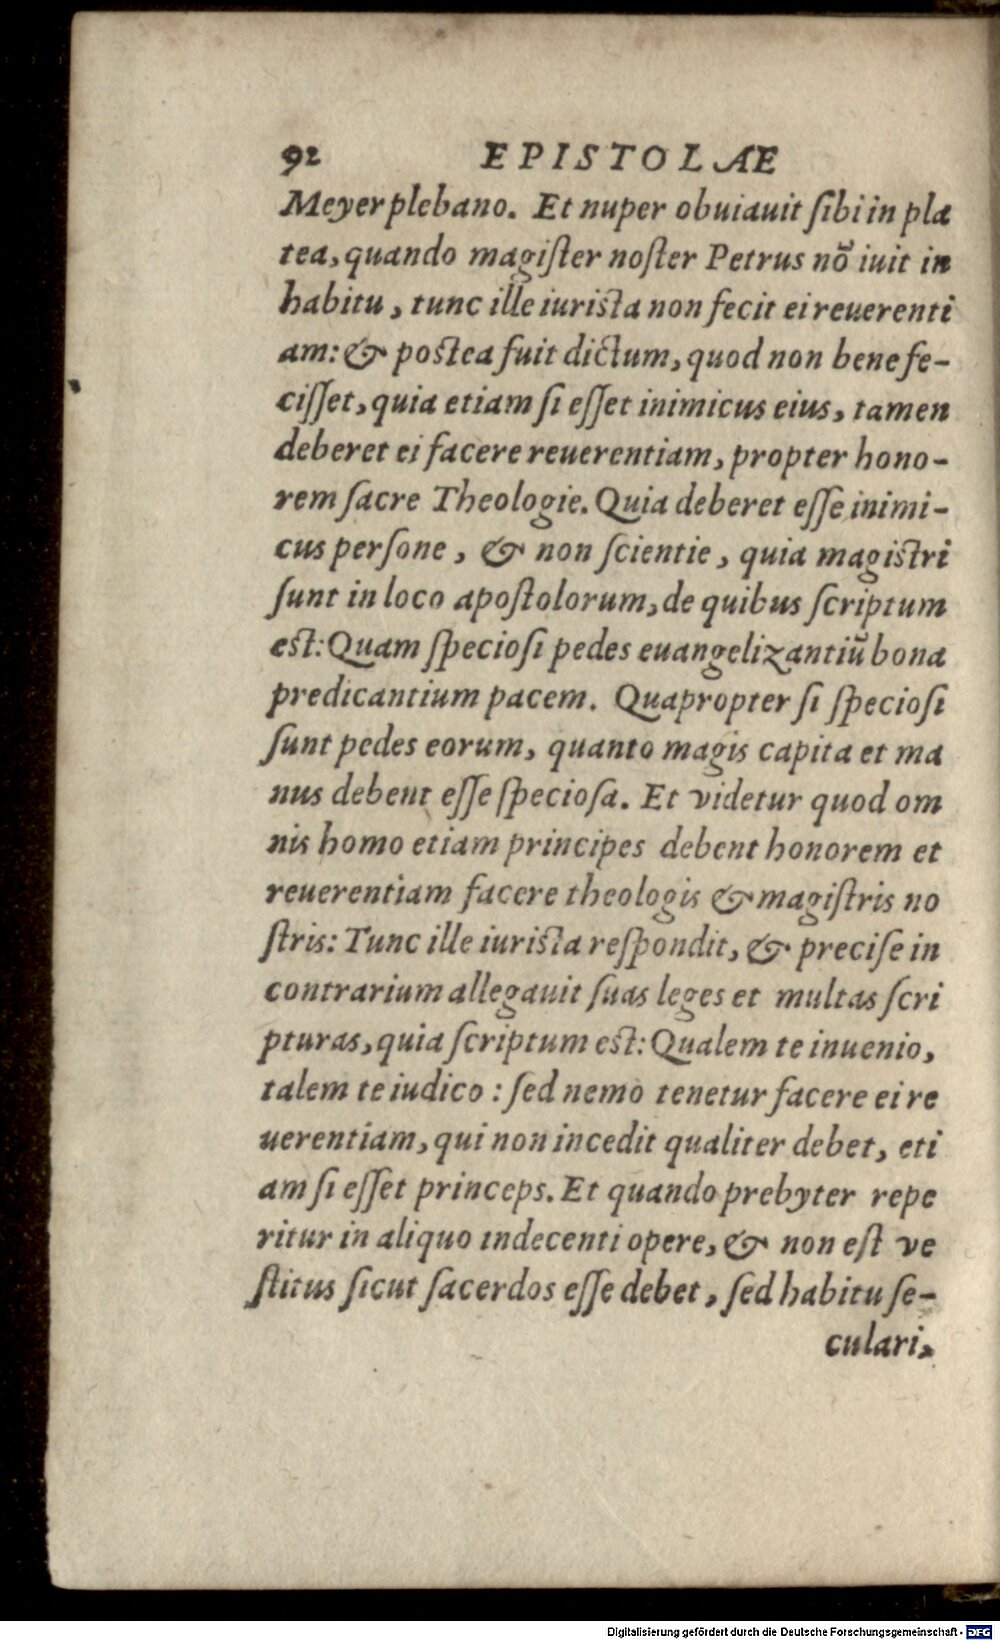 92 EPISTOLAE
Meyer plebano. Et nuper obuiauit ſibi in pla
tea, quando magiſter noſter Petrus nō iuit in
habitu, tunc ille iuriſta non fecit ei reuerenti
am: & poſtea fuit dictum, quod non bene fe-
ciſſet, quia etiam ſi eſſet inimicus eius, tamen
deberet ei facere reuerentiam, propter hono-
rem ſacre Theologie. Quia deberet eſſe inimi-
cus perſone, & non ſcientie, quia magiſtri
ſunt in loco apoſtolorum, de quibus ſcriptum
eſt: Quam ſpecioſi pedes euangelizantiū bona
predicantium pacem. Quapropter ſi ſpecioſi
ſunt pedes eorum, quanto magis capita et ma
nus debent eſſe ſpecioſa. Et videtur quod om
nis homo etiam principes debent honorem et
reuerentiam facere theologis & magiſtris no
ſtris: Tunc ille iuriſta reſpondit, & preciſe in
contrarium allegauit ſuas leges et multas ſcri
pturas, quia ſcriptum eſt: Qualem te inuenio,
talem te iudico: ſed nemo tenetur facere ei re
uerentiam, qui non incedit qualiter debet, eti
am ſi eſſet princeps. Et quando prebyter repe
ritur in aliquo indecenti opere, & non eſt ve
ſtitus ſicut ſacerdos eſſe debet, ſed habitu ſe-
culari,
Digitalisierung gefördert durch die Deutsche Forschungsgemeinschaft - DFG